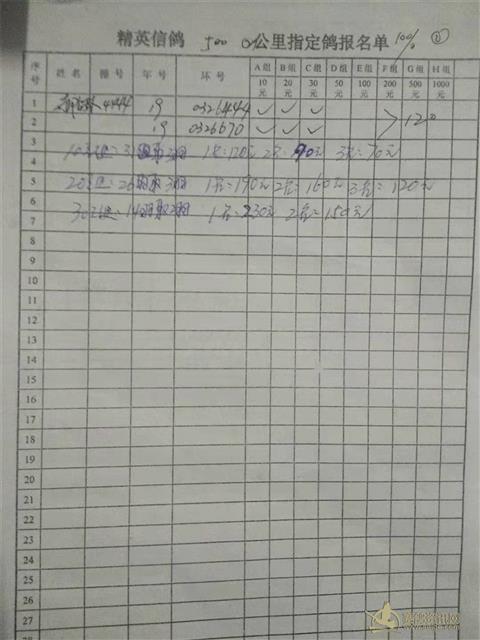 精英信鸽 500 公里指定鸽报名单 10% ②
序号 姓名 棚号 年号 环号 A组 B组 C组 D组 E组 F组 G组 H组
10元 20元 30元 50元 100元 200元 500元 1000元
1 4444 19 0326444 ✓ ✓ ✓
2 19 0326670 ✓ ✓ ✓ 120
3
4 10元 1名=120元 2名=90元 3名=70元
5 20元 1名=190元 2名=160元 3名=120元
6 30元 1名=230元 2名=150元
7
8
9
10
11
12
13
14
15
16
17
18
19
20
21
22
23
24
25
26
27
28